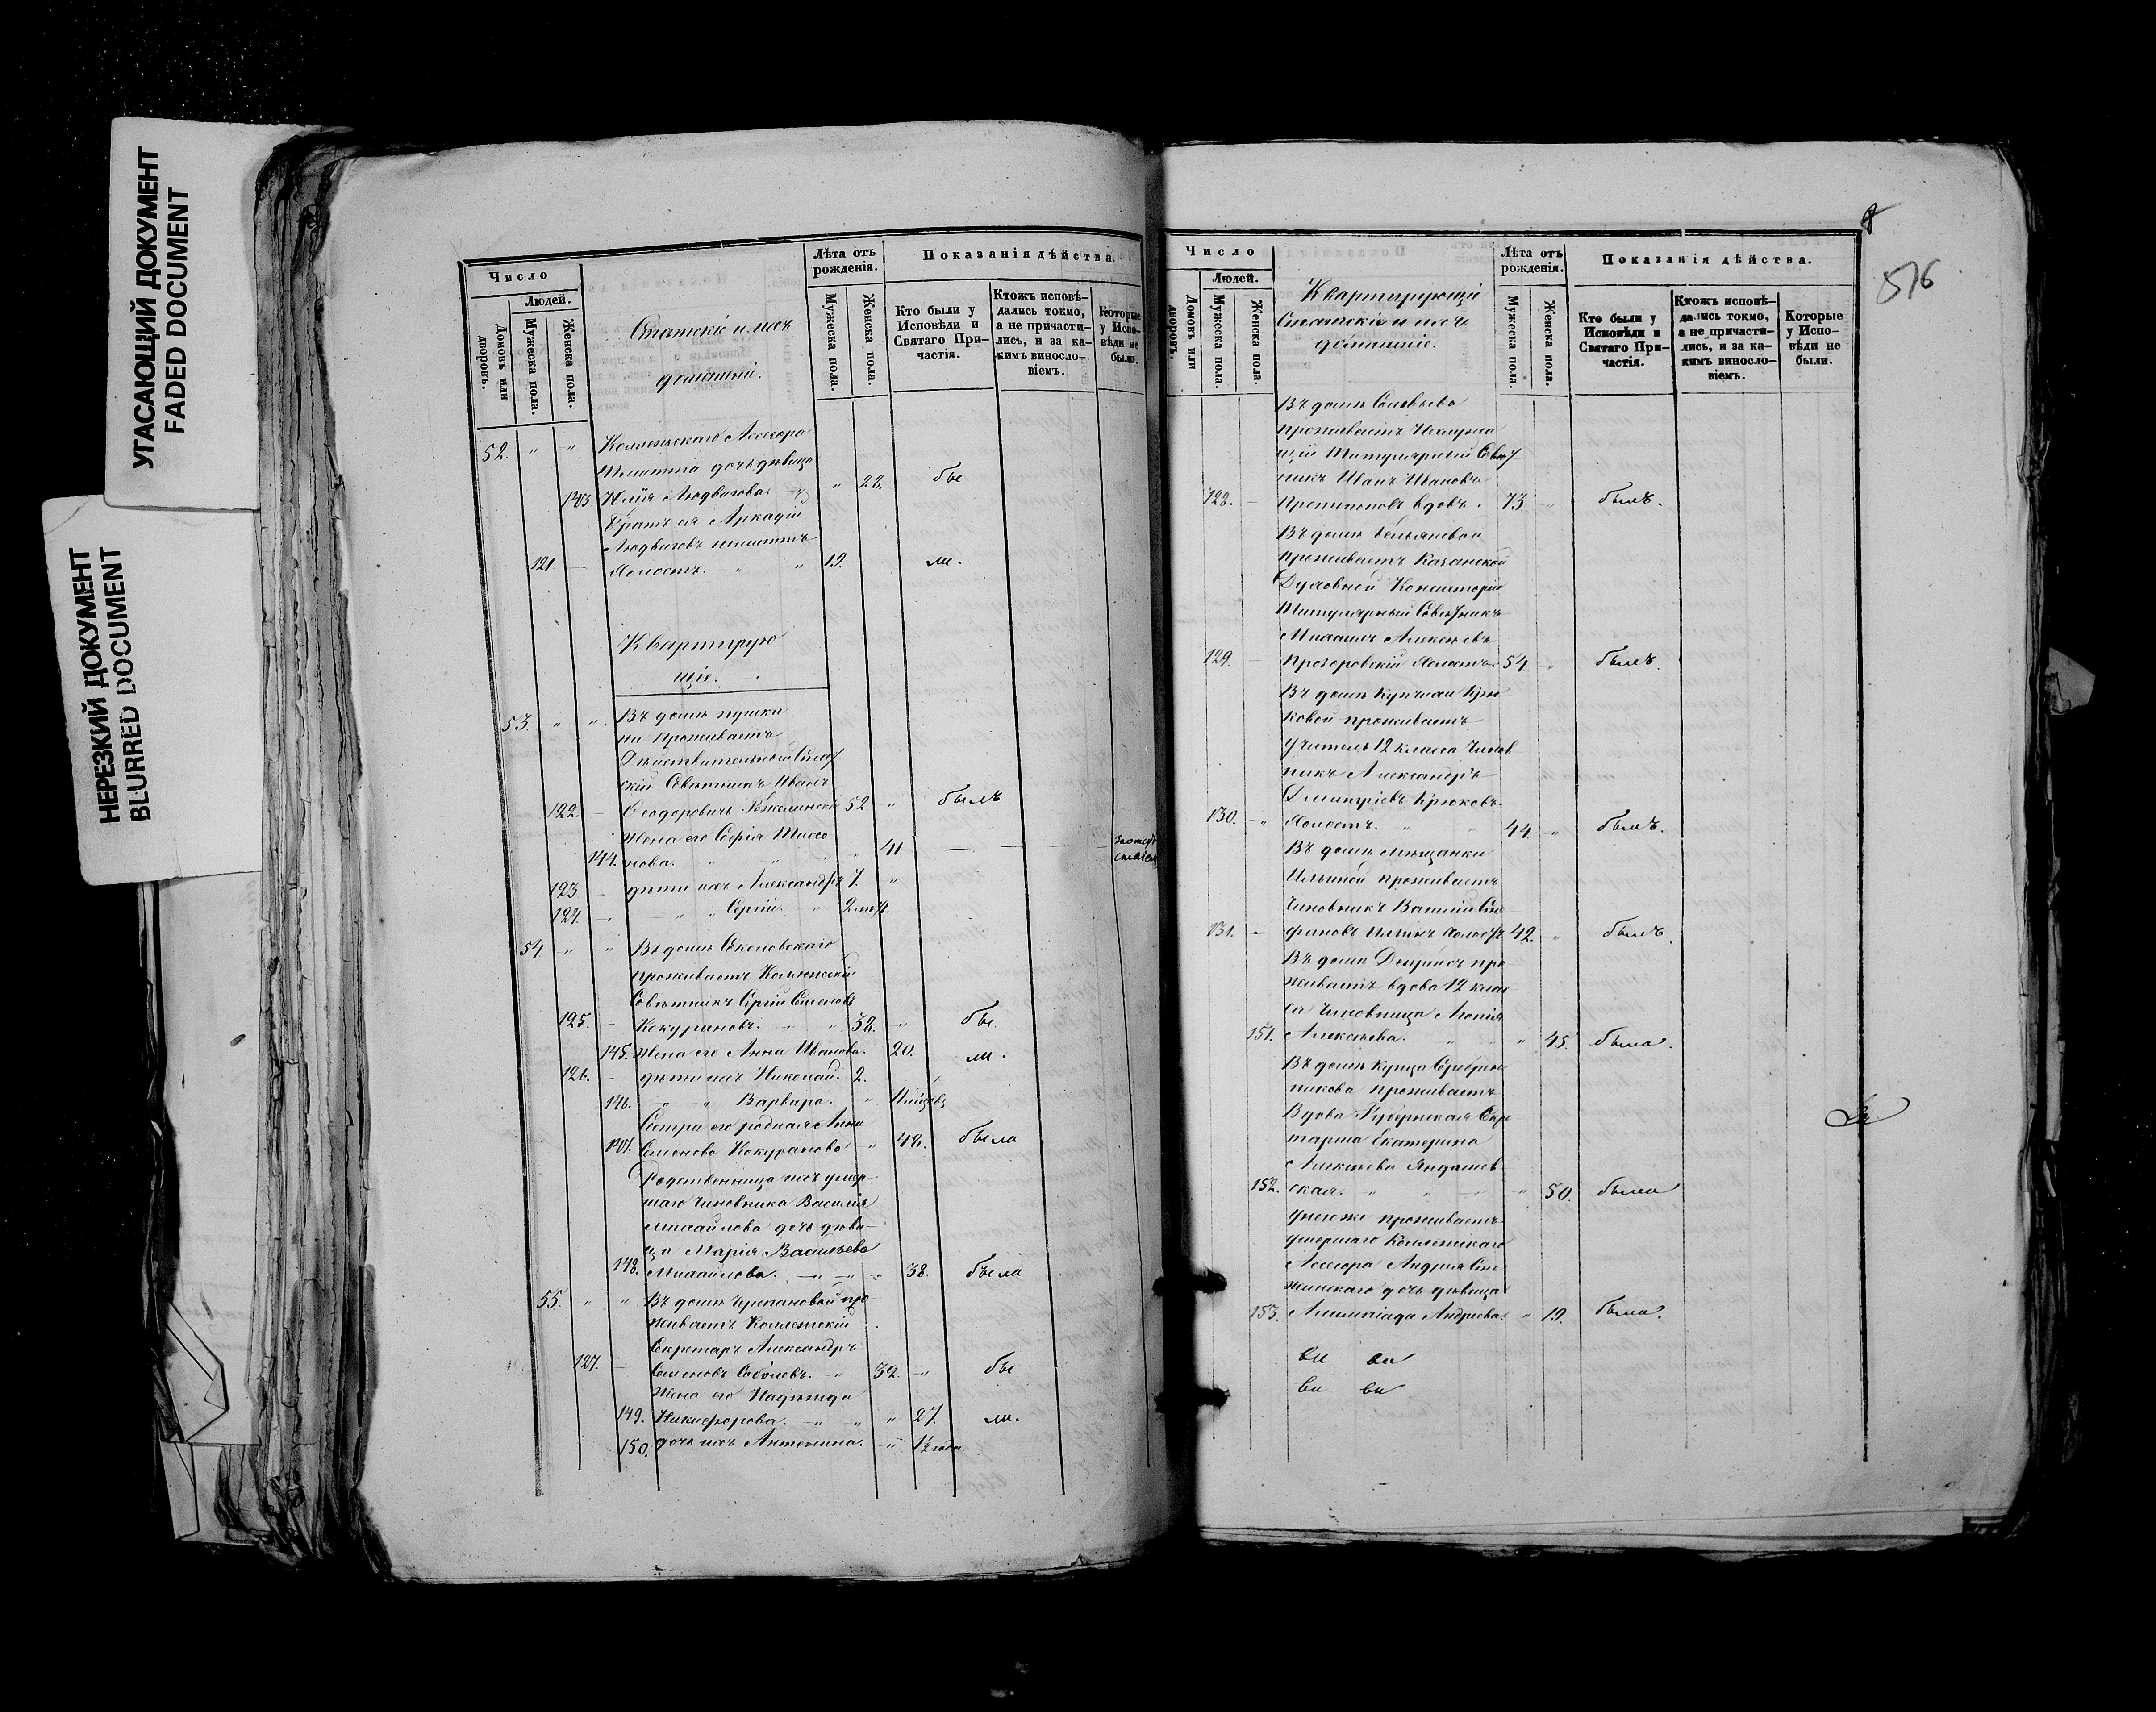 УГАСАЮЩИЙ ДОКУМЕНТ
FADED DOCUMENT
НЕРЕЗКИЙ ДОКУМЕНТ
BLURRED DOCUMENT
Число
Людей.
Домовъ или дворовъ.
Мужеска пола.
Женска пола.
Статскіе и ихъ
домашніе.
Лѣта отъ
рожденія.
Мужеска пола.
Женска пола.
Показанія дѣйства.
Кто были у
Исповѣди и
Святаго При-
частія.
Ктожъ исповѣ-
дались токмо,
а не причасти-
лись, и за ка-
кимъ виносло-
віемъ.
Которые
у Испо-
вѣди не
были.
52. " " Коллежскаго Ассесора
дочь дѣвица
143 Юлія Людвигова " 22. бы
Братъ ея Аркадій
Людвиговъ
121 — Холостъ. " " 19. ли.
Квартирую
щіе.
53. " " Въ домѣ Пушки
на проживаетъ
Дѣйствительный Стат
скій Совѣтникъ Иванъ
122. — Ѳеодоровичъ 52 " былъ
Жена его Софія
144. нова. " " " 41. — — —
123 — дѣти ихъ Александръ 7. "
124. — — " " Сергій.
54 " " Въ домѣ Соколовскаго
проживаетъ Коллежскій
Совѣтникъ Сергій Семеновъ
125. — Кокурановъ. — " 38. " бы.
145. Жена его Анна Иванова. 20. ли.
126. — дѣти ихъ Николай. 2.
146. " " Варвара. "
Сестра его родная Анна
147. Семенова Кокуранова. " 42. была
Родственница ихъ умер
шаго Чиновника Василія
Михайлова дочь дѣви-
ца Марія Васильева
148. Михайлова. — — " 38. была
55. " " Въ домѣ Черепановой про
живаетъ Коллежскій
Секретарь Александръ
127. — Семеновъ Соболевъ. — 32. " бы
Жена его Надежда
149. Никифорова. — " " 27. ли.
150. дочь ихъ Антонина. " 1½ года.
8
516
Число
Людей.
Домовъ или дворовъ.
Мужеска пола.
Женска пола.
Квартирующіе
Статскіе и ихъ
домашніе.
Лѣта отъ
рожденія.
Мужеска пола.
Женска пола.
Показанія дѣйства.
Кто были у
Исповѣди и
Святаго При-
частія.
Ктожъ исповѣ-
дались токмо,
а не причасти-
лись, и за ка-
кимъ виносло-
віемъ.
Которые
у Испо-
вѣди не
были.
Въ домѣ Соловьева
проживаетъ
щій Титулярный Совѣт
никъ Иванъ Ивановъ
128. — вдовъ. 73 " былъ.
Въ домѣ
проживаетъ Казанской
Духовной Консисторіи
Титулярный Совѣтникъ
Михаилъ Алексѣевъ
129. — Прозоровскій Холостъ. 54 " былъ.
Въ домѣ Купчихи Крю
ковой проживаетъ
учитель 12 класса Чинов
никъ Александръ
Димитріевъ Крюковъ
130. — " Холостъ. " " 44. " былъ.
Въ домѣ Мѣщанки
Ильиной проживаетъ
Чиновникъ Василій Сте
131. — фановъ Ильинъ Холостъ 42. " былъ.
Въ домѣ про
живаетъ вдова 12 клас
са Чиновница
151. Алексѣева. " " 45. была.
Въ домѣ Купца Серебрен
никова проживаетъ
Вдова Губернская Секре
тарша Екатерина
Алексѣева Яндашев
152. ская. " " — " 50. была
У нея же проживаетъ
умершаго Коллежскаго
Ассесора Андрея
дочь дѣвица
153. Андреева. " 19. была.